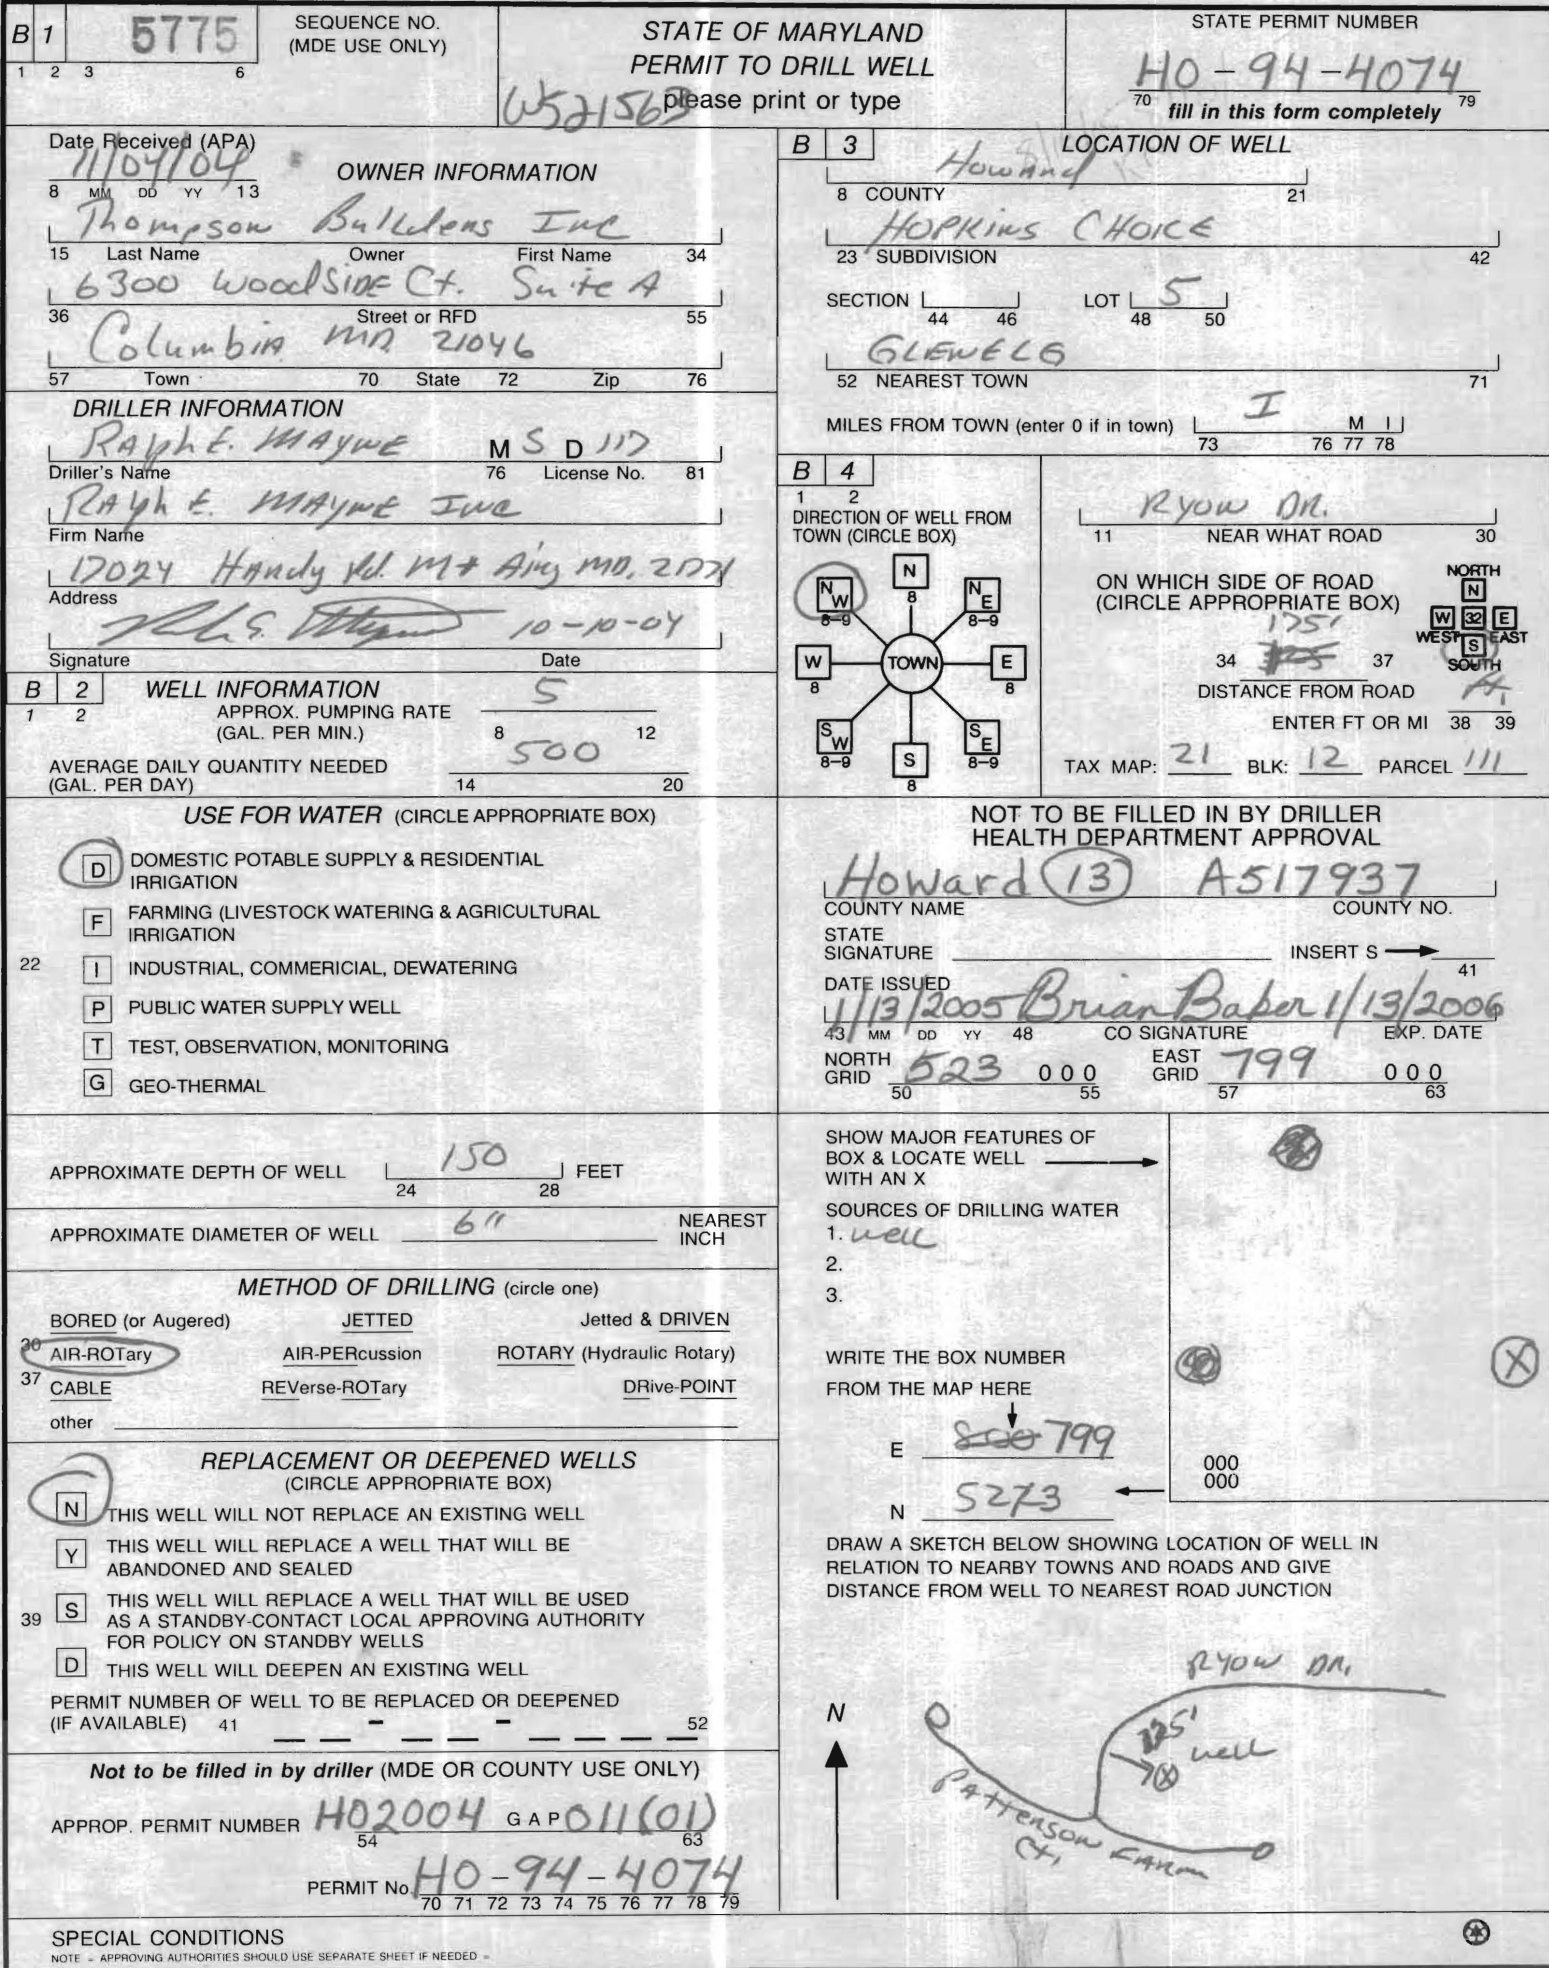 B 1 5775
1 2 3 6
SEQUENCE NO.
(MDE USE ONLY)
STATE OF MARYLAND
PERMIT TO DRILL WELL
please print or type
W521563
STATE PERMIT NUMBER
HO-94-4074
70 79
fill in this form completely
Date Received (APA)
11/04/04
8 MM DD YY 13
OWNER INFORMATION
Thompson Builders Inc
15 Last Name Owner First Name 34
6300 WoodSIDE Ct. Suite A
36 Street or RFD 55
Columbia MD. 21046
57 Town 70 State 72 Zip 76
DRILLER INFORMATION
Ralph E. MAYNE M S D 117
Driller's Name 76 License No. 81
Ralph E. MAYNE Inc
Firm Name
17024 Handy Rd. Mt Airy MD. 21771
Address
10-10-04
Signature Date
B 2 WELL INFORMATION
1 2
APPROX. PUMPING RATE
(GAL. PER MIN.) 5
8 12
AVERAGE DAILY QUANTITY NEEDED
(GAL. PER DAY) 500
14 20
USE FOR WATER (CIRCLE APPROPRIATE BOX)
D DOMESTIC POTABLE SUPPLY & RESIDENTIAL
IRRIGATION
F FARMING (LIVESTOCK WATERING & AGRICULTURAL
IRRIGATION
22 I INDUSTRIAL, COMMERICIAL, DEWATERING
P PUBLIC WATER SUPPLY WELL
T TEST, OBSERVATION, MONITORING
G GEO-THERMAL
APPROXIMATE DEPTH OF WELL 150 FEET
24 28
APPROXIMATE DIAMETER OF WELL 6" NEAREST
INCH
METHOD OF DRILLING (circle one)
BORED (or Augered) JETTED Jetted & DRIVEN
30 AIR-ROTary AIR-PERcussion ROTARY (Hydraulic Rotary)
37 CABLE REVerse-ROTary DRive-POINT
other
REPLACEMENT OR DEEPENED WELLS
(CIRCLE APPROPRIATE BOX)
N THIS WELL WILL NOT REPLACE AN EXISTING WELL
Y THIS WELL WILL REPLACE A WELL THAT WILL BE
ABANDONED AND SEALED
39 S THIS WELL WILL REPLACE A WELL THAT WILL BE USED
AS A STANDBY-CONTACT LOCAL APPROVING AUTHORITY
FOR POLICY ON STANDBY WELLS
D THIS WELL WILL DEEPEN AN EXISTING WELL
PERMIT NUMBER OF WELL TO BE REPLACED OR DEEPENED
(IF AVAILABLE) 41 - - 52
Not to be filled in by driller (MDE OR COUNTY USE ONLY)
APPROP. PERMIT NUMBER HO2004 G A P 011(01)
54 63
PERMIT No. HO-94-4074
70 71 72 73 74 75 76 77 78 79
SPECIAL CONDITIONS
NOTE - APPROVING AUTHORITIES SHOULD USE SEPARATE SHEET IF NEEDED -
B 3 LOCATION OF WELL
Howard
8 COUNTY 21
HOPKINS CHOICE
23 SUBDIVISION 42
SECTION LOT 5
44 46 48 50
GLENELG
52 NEAREST TOWN 71
MILES FROM TOWN (enter 0 if in town) I M I
73 76 77 78
B 4
1 2
DIRECTION OF WELL FROM
TOWN (CIRCLE BOX)
N
8
NW NE
8-9 8-9
W TOWN E
8 8
SW SE
8-9 8-9
S
8
Ryow DR.
11 NEAR WHAT ROAD 30
ON WHICH SIDE OF ROAD
(CIRCLE APPROPRIATE BOX)
NORTH
N
W 32 E
WEST EAST
S
SOUTH
175'
34 37
DISTANCE FROM ROAD
ENTER FT OR MI ft.
38 39
TAX MAP: 21 BLK: 12 PARCEL 111
NOT TO BE FILLED IN BY DRILLER
HEALTH DEPARTMENT APPROVAL
Howard (13) A517937
COUNTY NAME COUNTY NO.
STATE
SIGNATURE INSERT S
41
DATE ISSUED
1/13/2005 Brian Baker 1/13/2006
43 MM DD YY 48 CO SIGNATURE EXP. DATE
NORTH
GRID 523 000
50 55
EAST
GRID 799 000
57 63
SHOW MAJOR FEATURES OF
BOX & LOCATE WELL
WITH AN X
SOURCES OF DRILLING WATER
1. well
2.
3.
WRITE THE BOX NUMBER
FROM THE MAP HERE
E 800 799
N 5273
X
000
000
DRAW A SKETCH BELOW SHOWING LOCATION OF WELL IN
RELATION TO NEARBY TOWNS AND ROADS AND GIVE
DISTANCE FROM WELL TO NEAREST ROAD JUNCTION
N
RYOW DR.
well
X
PATTERSON FARM
Ct.